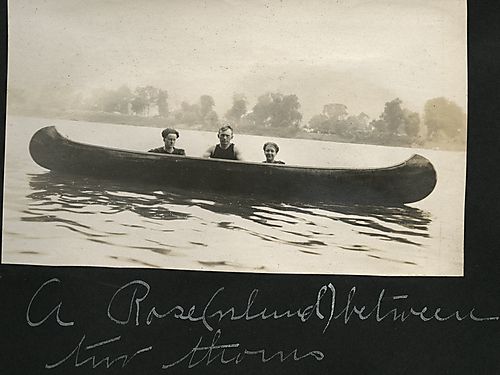 A Rose(nlund) between
two thorns